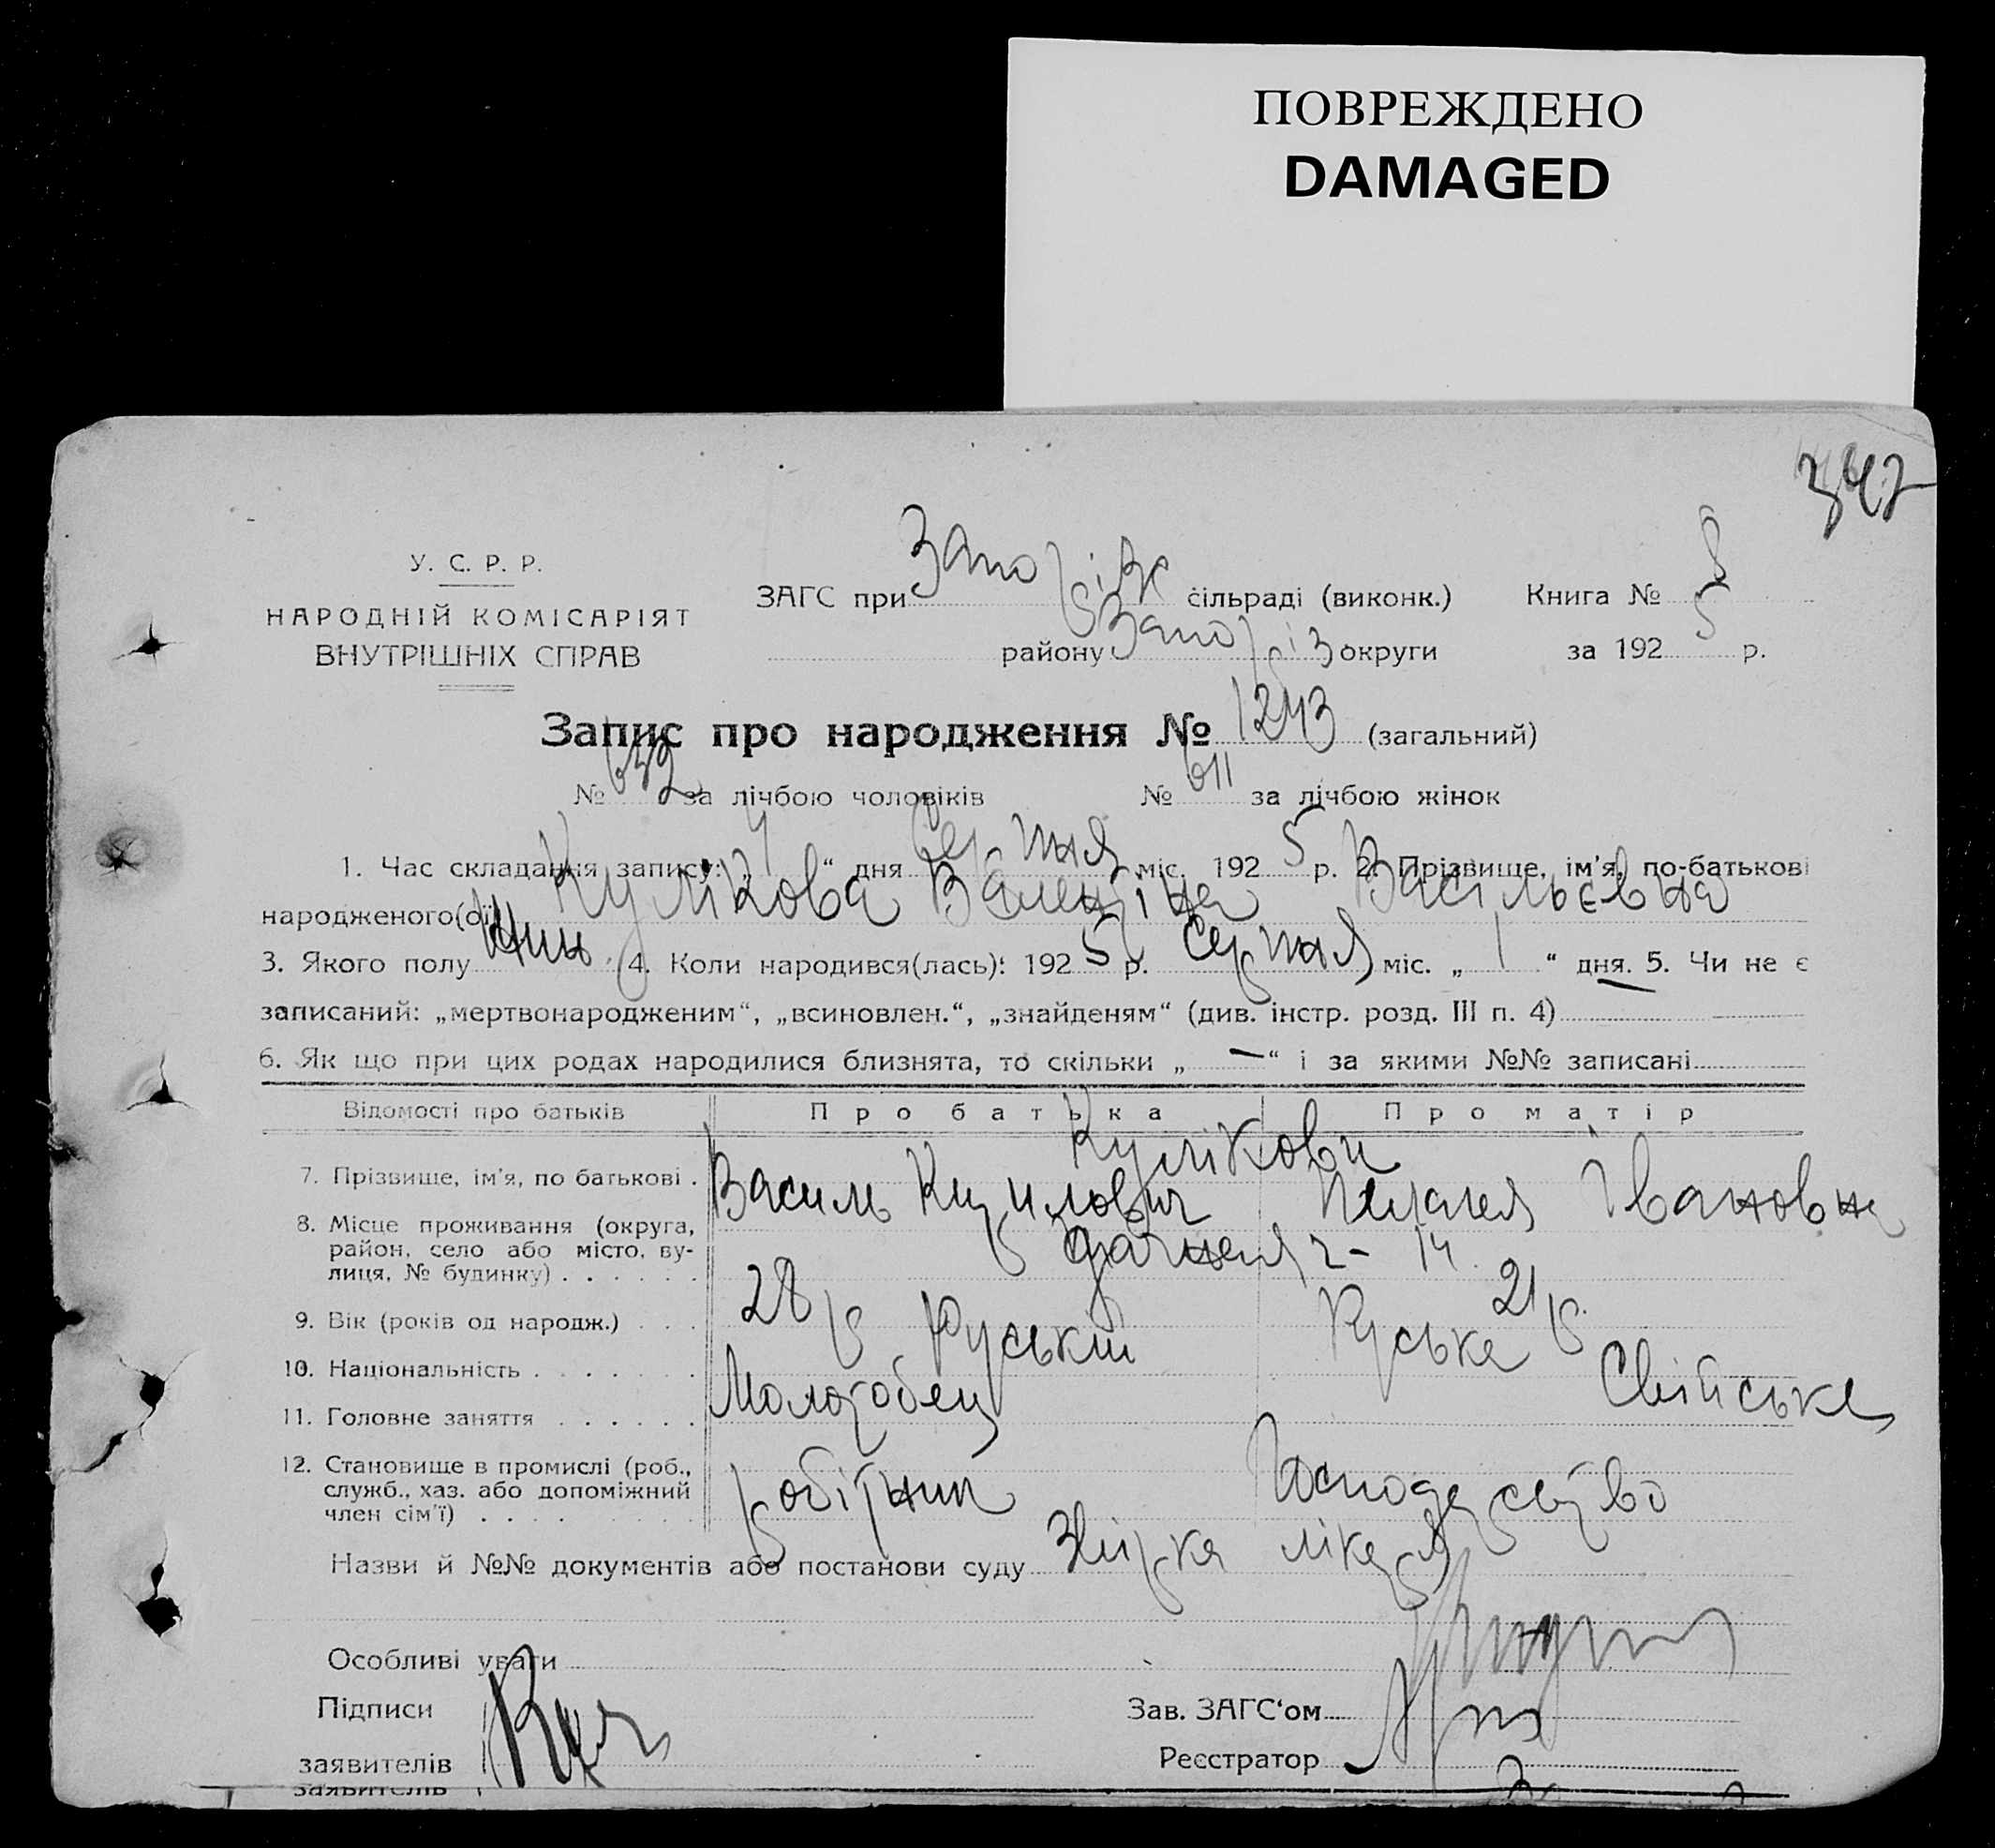 ПОВРЕЖДЕНО
DAMAGED
342
У. С. Р. Р.
НАРОДНІЙ КОМІСАРІЯТ
ВНУТРІШНІХ СПРАВ
ЗАГС при Запоріж сільраді (виконк.) Книга № 8
району Запоріз округи за 1925 р.
Запис про народження № 1243 (загальний)
№ 632 за лічбою чоловіків № 611 за лічбою жінок
1. Час складання запису: „4“ дня Серпня міс. 1925 р. 2. Прізвище, ім'я, по-батькові
народженого(ої) Кулікова Валентіна Васільєвна
3. Якого полу жін. 4. Коли народився(лась): 1925 р. Серпня міс. „1“ дня. 5. Чи не є
записаний: „мертвонародженим“, „всиновлен.“, „знайденям“ (див. інстр. розд. III п. 4)
6. Як що при цих родах народилися близнята, то скільки „—“ і за якими №№ записані
Відомості про батьків Про батька Про матір
Кулікови
7. Прізвище, ім'я, по батькові . Василь Кирилович Пелагея Івановна
8. Місце проживання (округа,
район, село або місто, ву-
лиця, № будинку) . . . . . . Дачная 2 - 14
9. Вік (років од народж.) . . . 28 р. 21 р.
10. Національність . . . . . . . Руський Руська
11. Головне заняття . . . . . . Молотобец Свійське
12. Становище в промислі (роб.,
служб., хаз. або допоміжний
член сім'ї) . . . . робітник Господарство
Назви й №№ документів або постанови суду лікаря
Особливі уваги
Підписи Зав. ЗАГС‘ом
заявителів Реєстратор
заявителів